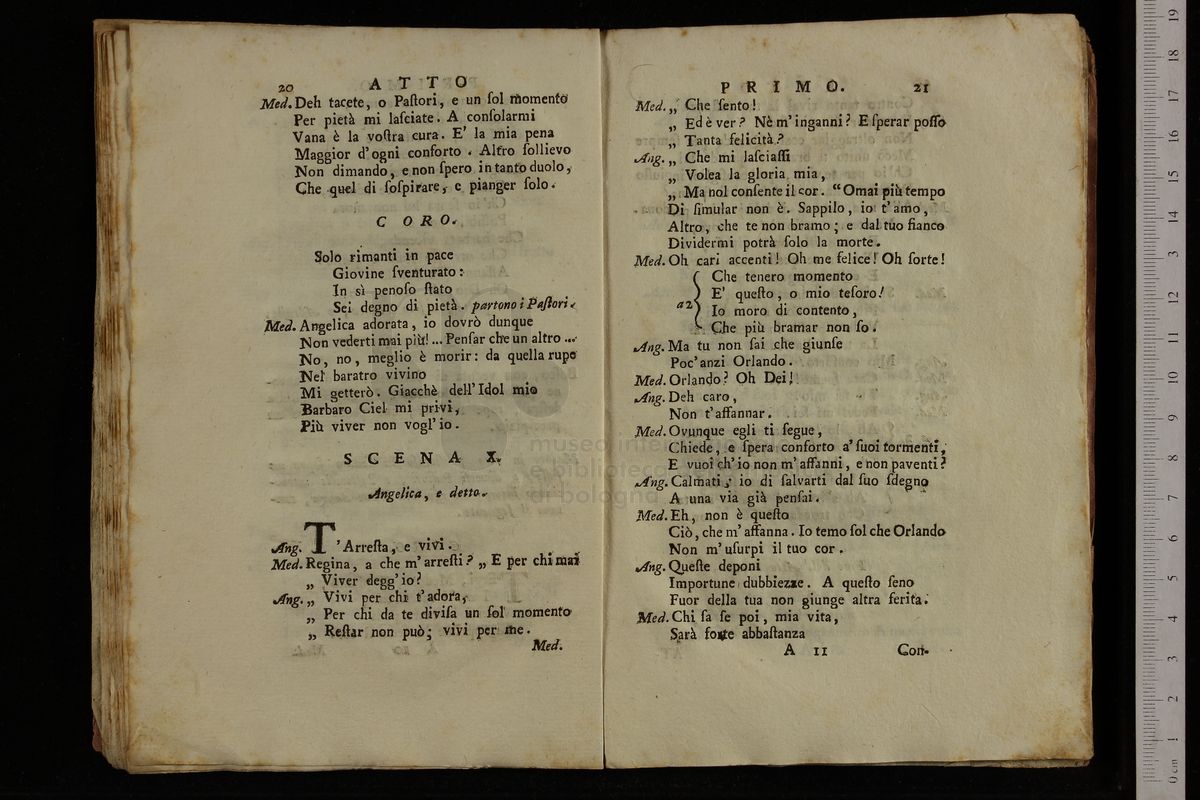 20 ATTO
Med. Deh tacete, o Paſtori, e un ſol momento
Per pietà mi laſciate. A conſolarmi
Vana è la voſtra cura. E' la mia pena
Maggior d'ogni conforto. Altro ſollievo
Non dimando, e non ſpero in tanto duolo,
Che quel di ſoſpirare, e pianger ſolo.
CORO.
Solo rimanti in pace
Giovine ſventurato:
In sì penoſo ſtato
Sei degno di pietà. partono i Paſtori.
Med. Angelica adorata, io dovrò dunque
Non vederti mai più!... Penſar che un altro ....
No, no, meglio è morir: da quella rupe
Nel baratro vivino
Mi getterò. Giacchè dell'Idol mio
Barbaro Ciel mi privi,
Più viver non vogl'io.
SCENA X.
Angelica, e detto.
Ang. T'Arreſta, e vivi.
Med. Regina, a che m'arreſti? „ E per chi mai
„ Viver degg'io?
Ang. „ Vivi per chi t'adora,
„ Per chi da te diviſa un ſol momento
„ Reſtar non può; vivi per me.
Med.
PRIMO. 21
Med. „ Che ſento!
„ Ed è ver? Nè m'inganni? E ſperar poſſo
„ Tanta felicità?
Ang. „ Che mi laſciaſſi
„ Volea la gloria mia,
„ Ma nol conſente il cor. “Omai più tempo
Di ſimular non è. Sappilo, io t'amo,
Altro, che te non bramo; e dal tuo fianco
Dividermi potrà ſolo la morte.
Med. Oh cari accenti! Oh me felice! Oh ſorte!
Che tenero momento
E' queſto, o mio teſoro!
a2 Io moro di contento,
Che più bramar non ſo.
Ang. Ma tu non ſai che giunſe
Poc'anzi Orlando.
Med. Orlando? Oh Dei!
Ang. Deh caro,
Non t'affannar.
Med. Ovunque egli ti ſegue,
Chiede, e ſpera conforto a' ſuoi tormenti,
E vuoi ch'io non m'affanni, e non paventi?
Ang. Calmati; io di ſalvarti dal ſuo ſdegno
A una via già penſai.
Med. Eh, non è queſto
Ciò, che m'affanna. Io temo ſol che Orlando
Non m'uſurpi il tuo cor.
Ang. Queſte deponi
Importune dubbiezze. A queſto ſeno
Fuor della tua non giunge altra ferita.
Med. Chi ſa ſe poi, mia vita,
Sarà forte abbaſtanza
A 11 Con-